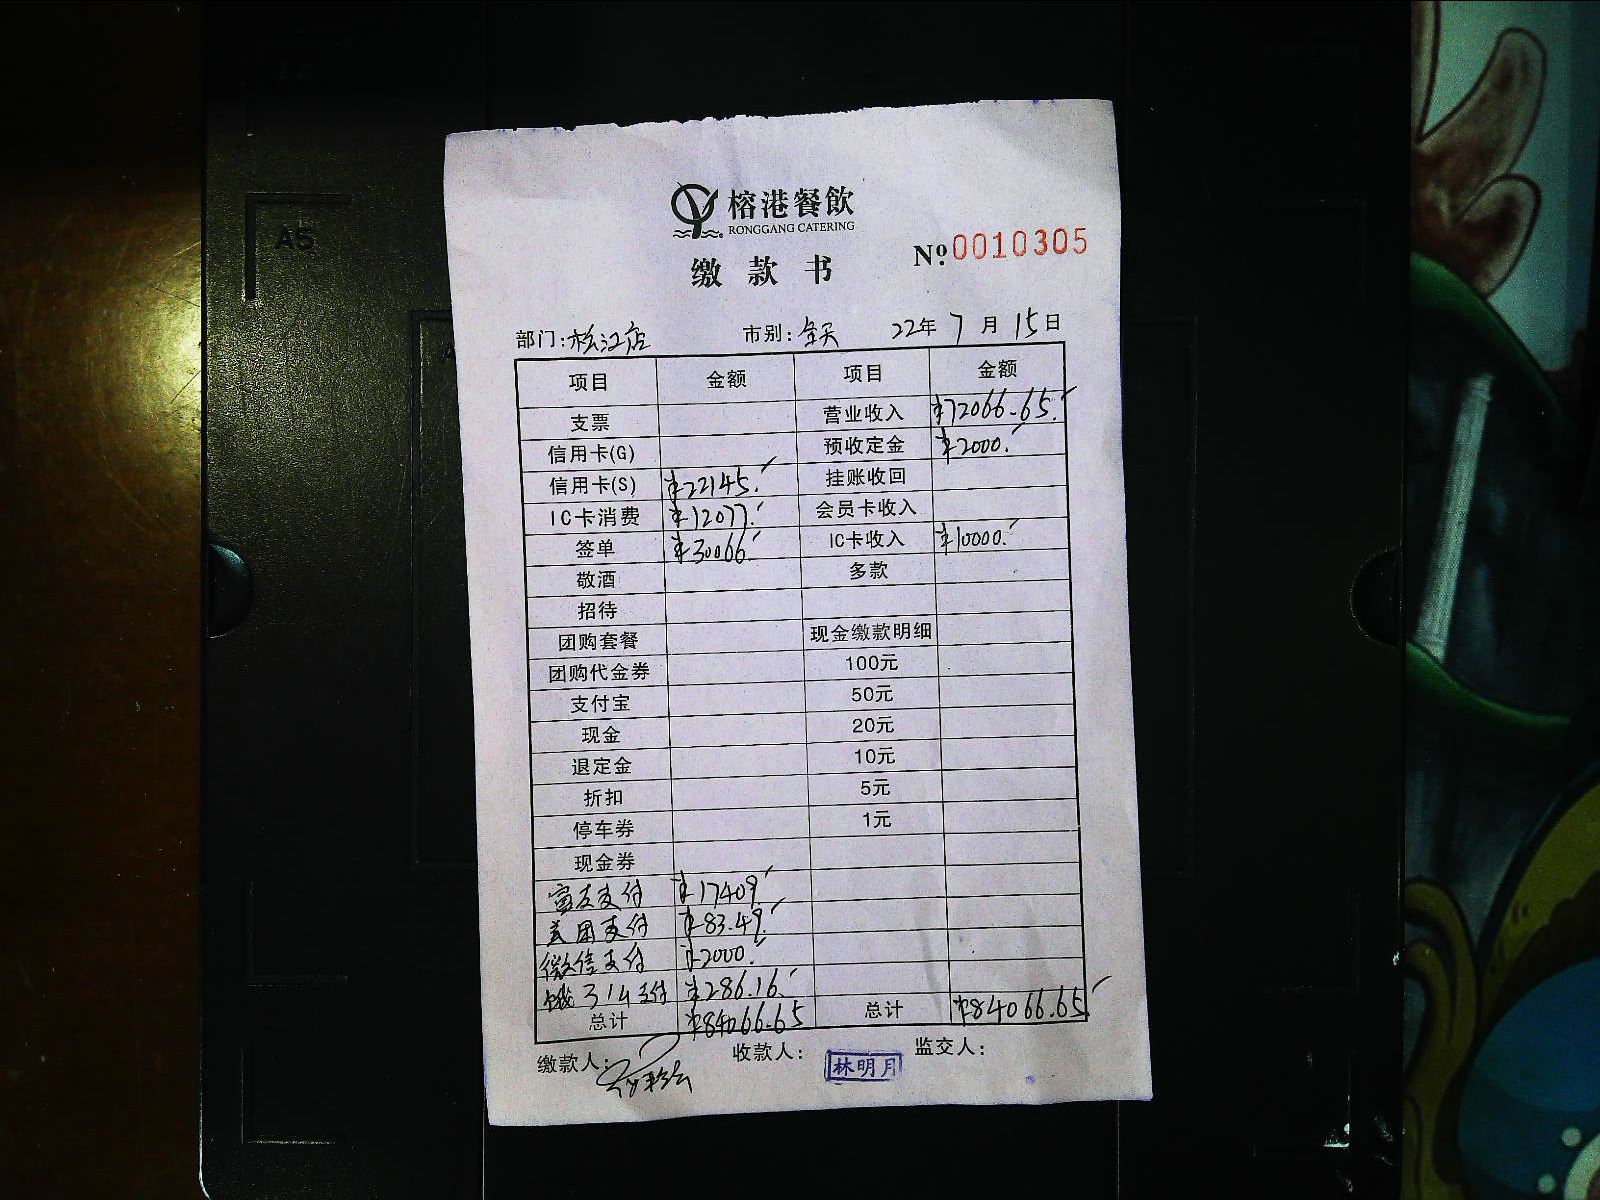 榕港餐飲
RONGGANG CATERING
№ 0010305
缴款书
部门:松江店 市别:全天 22年7月15日
项目 金额 项目 金额
支票 营业收入 ¥72066.65
信用卡(G) 预收定金 ¥2000.
信用卡(S) ¥22145. 挂账收回
IC卡消费 ¥12077. 会员卡收入
签单 ¥30066. IC卡收入 ¥10000.
敬酒 多款
招待
团购套餐 现金缴款明细
团购代金券 100元
支付宝 50元
现金 20元
退定金 10元
折扣 5元
停车券 1元
现金券
富友支付 ¥17409.
美团支付 ¥83.49.
微信支付 ¥2000.
饿了么支付 ¥286.16.
总计 ¥84066.65 总计 ¥84066.65
缴款人: 收款人: 林明月 监交人:
A5